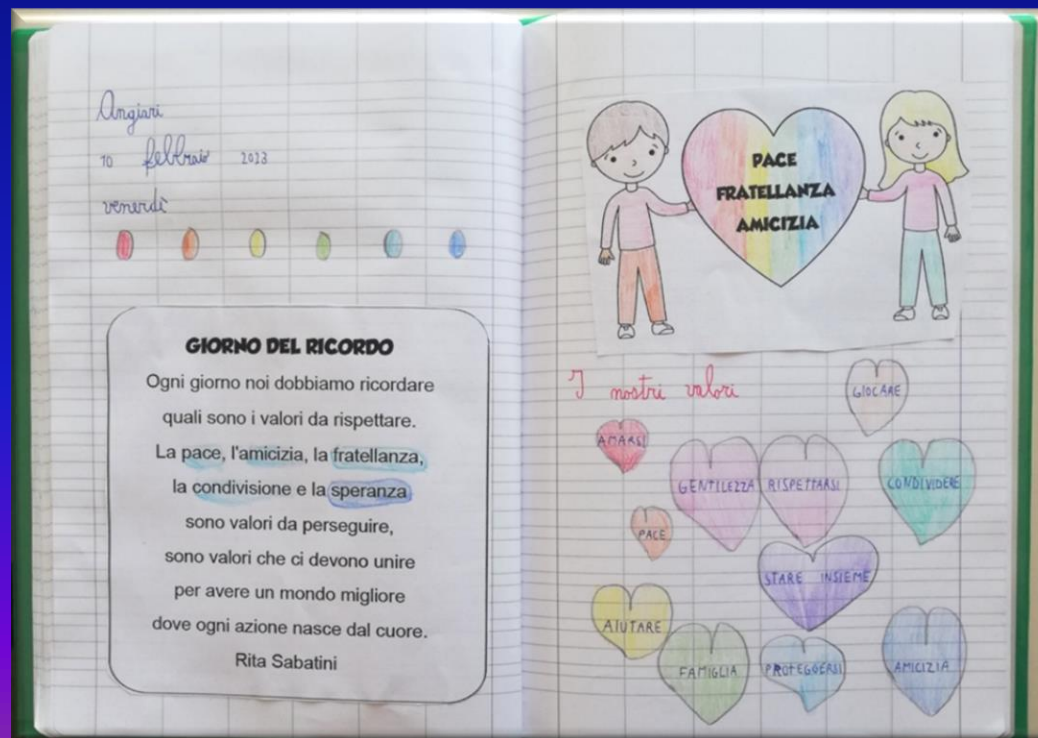 Angiari
10 febbraio 2023
venerdì
GIORNO DEL RICORDO
Ogni giorno noi dobbiamo ricordare
quali sono i valori da rispettare.
La pace, l'amicizia, la fratellanza,
la condivisione e la speranza
sono valori da perseguire,
sono valori che ci devono unire
per avere un mondo migliore
dove ogni azione nasce dal cuore.
Rita Sabatini
PACE
FRATELLANZA
AMICIZIA
I nostri valori
GIOCARE
AMARSI
GENTILEZZA
RISPETTARSI
CONDIVIDERE
PACE
STARE INSIEME
AIUTARE
FAMIGLIA
PROTEGGERSI
AMICIZIA